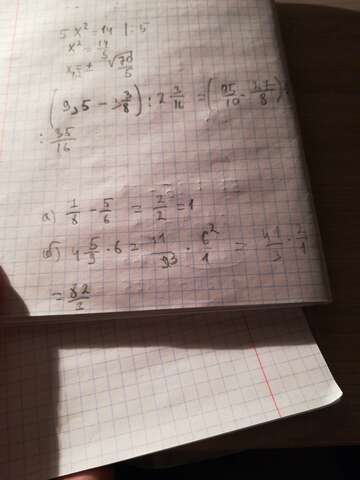 5x² = 14 | : 5
x² = 14/5
x₁,₂ = ± √70/5
(9,5 - 3/8) : 2 3/16 = (95/10 -
: 35/16
а) 7/8 - 5/6 = 2/2 = 1
б) 4 5/9 · 6 = 41/93 · 6²/1 = 41/3 · 2/1
= 82/3